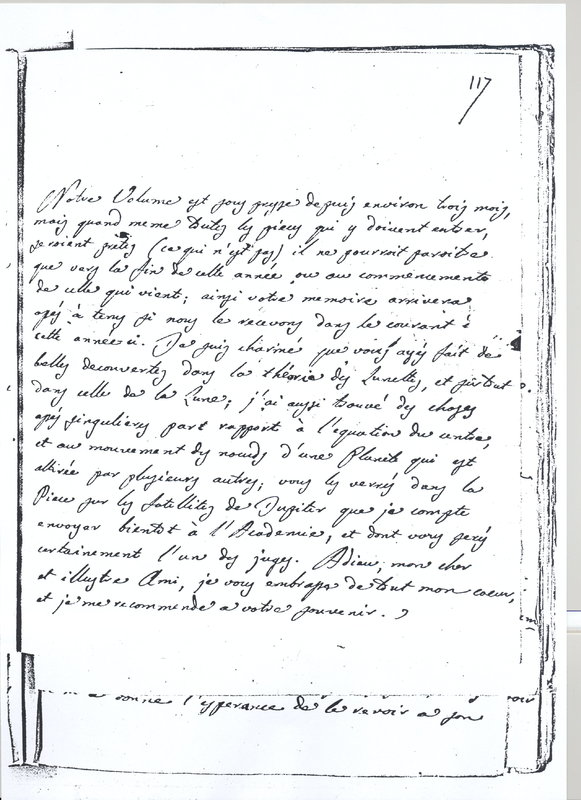 117
Notre Volume est sous presse depuis environ trois mois,
mais quand meme toutes les pieces qui y doivent entrer,
seroient prêtes (ce qui n'est pas) il ne pourroit paroitre
que vers la fin de cette année, ou au commencement
de celle qui vient; ainsi votre memoire arrivera
assés à tems si nous le recevons dans le courant de
cette année ci. Je suis charmé que vous ayés fait de
belles decouvertes dans la théorie des Lunettes, et surtout
dans celle de la Lune; j'ai aussi trouvé des choses
assés singulieres part rapport à l'équation du centre,
et au mouvement des noeuds d'une Planete qui est
attirée par plusieurs autres; vous les verrés dans la
Piece sur les Satellites de Jupiter que je compte
envoyer bientot à l'Academie, et dont vous serés
certainement l'un des juges. Adieu, mon cher
et illustre Ami, je vous embrasse de tout mon coeur,
et je me recommende a votre souvenir.
donne l'esperance de le revoir a son